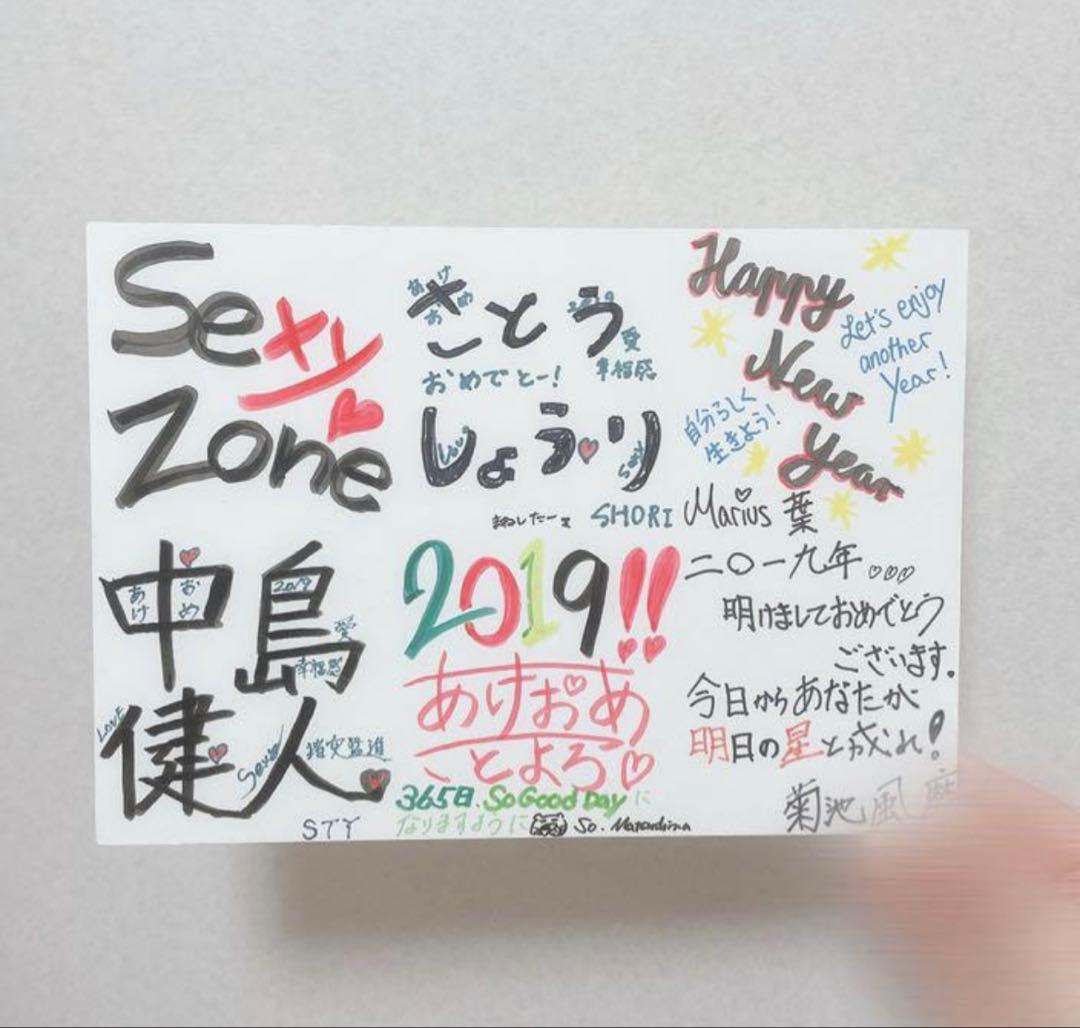 Sexy
Zone
あけ
おめ
さとう
2019
愛
幸福感
おめでとー!
しょうり
Sexy
まねしたーェ
SHORI
Happy
New
Year
Let's enjoy
another
Year!
自分らしく
生きよう!
Marius 葉
中島
あけ
おめ
2019
愛
幸福感
健人
LOVE
Sexie
猪突猛進
STY
2019!!
あけおめ
ことよろ
365日.So Good Dayに
なりますように
So. Matsushima
二〇一九年
明けましておめでとう
ございます。
今日からあなたが
明日の星と成れ!
菊池風磨